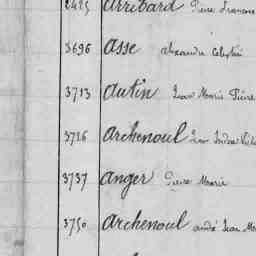 2425 Arribard Pierre Francois
3696 Asse Alexandre Celestin
3713 Autin Jean Marie Pierre
3726 Archenoul Jean
3737 Anger Pierre Marie
3750 Archenoul André Jean Ma